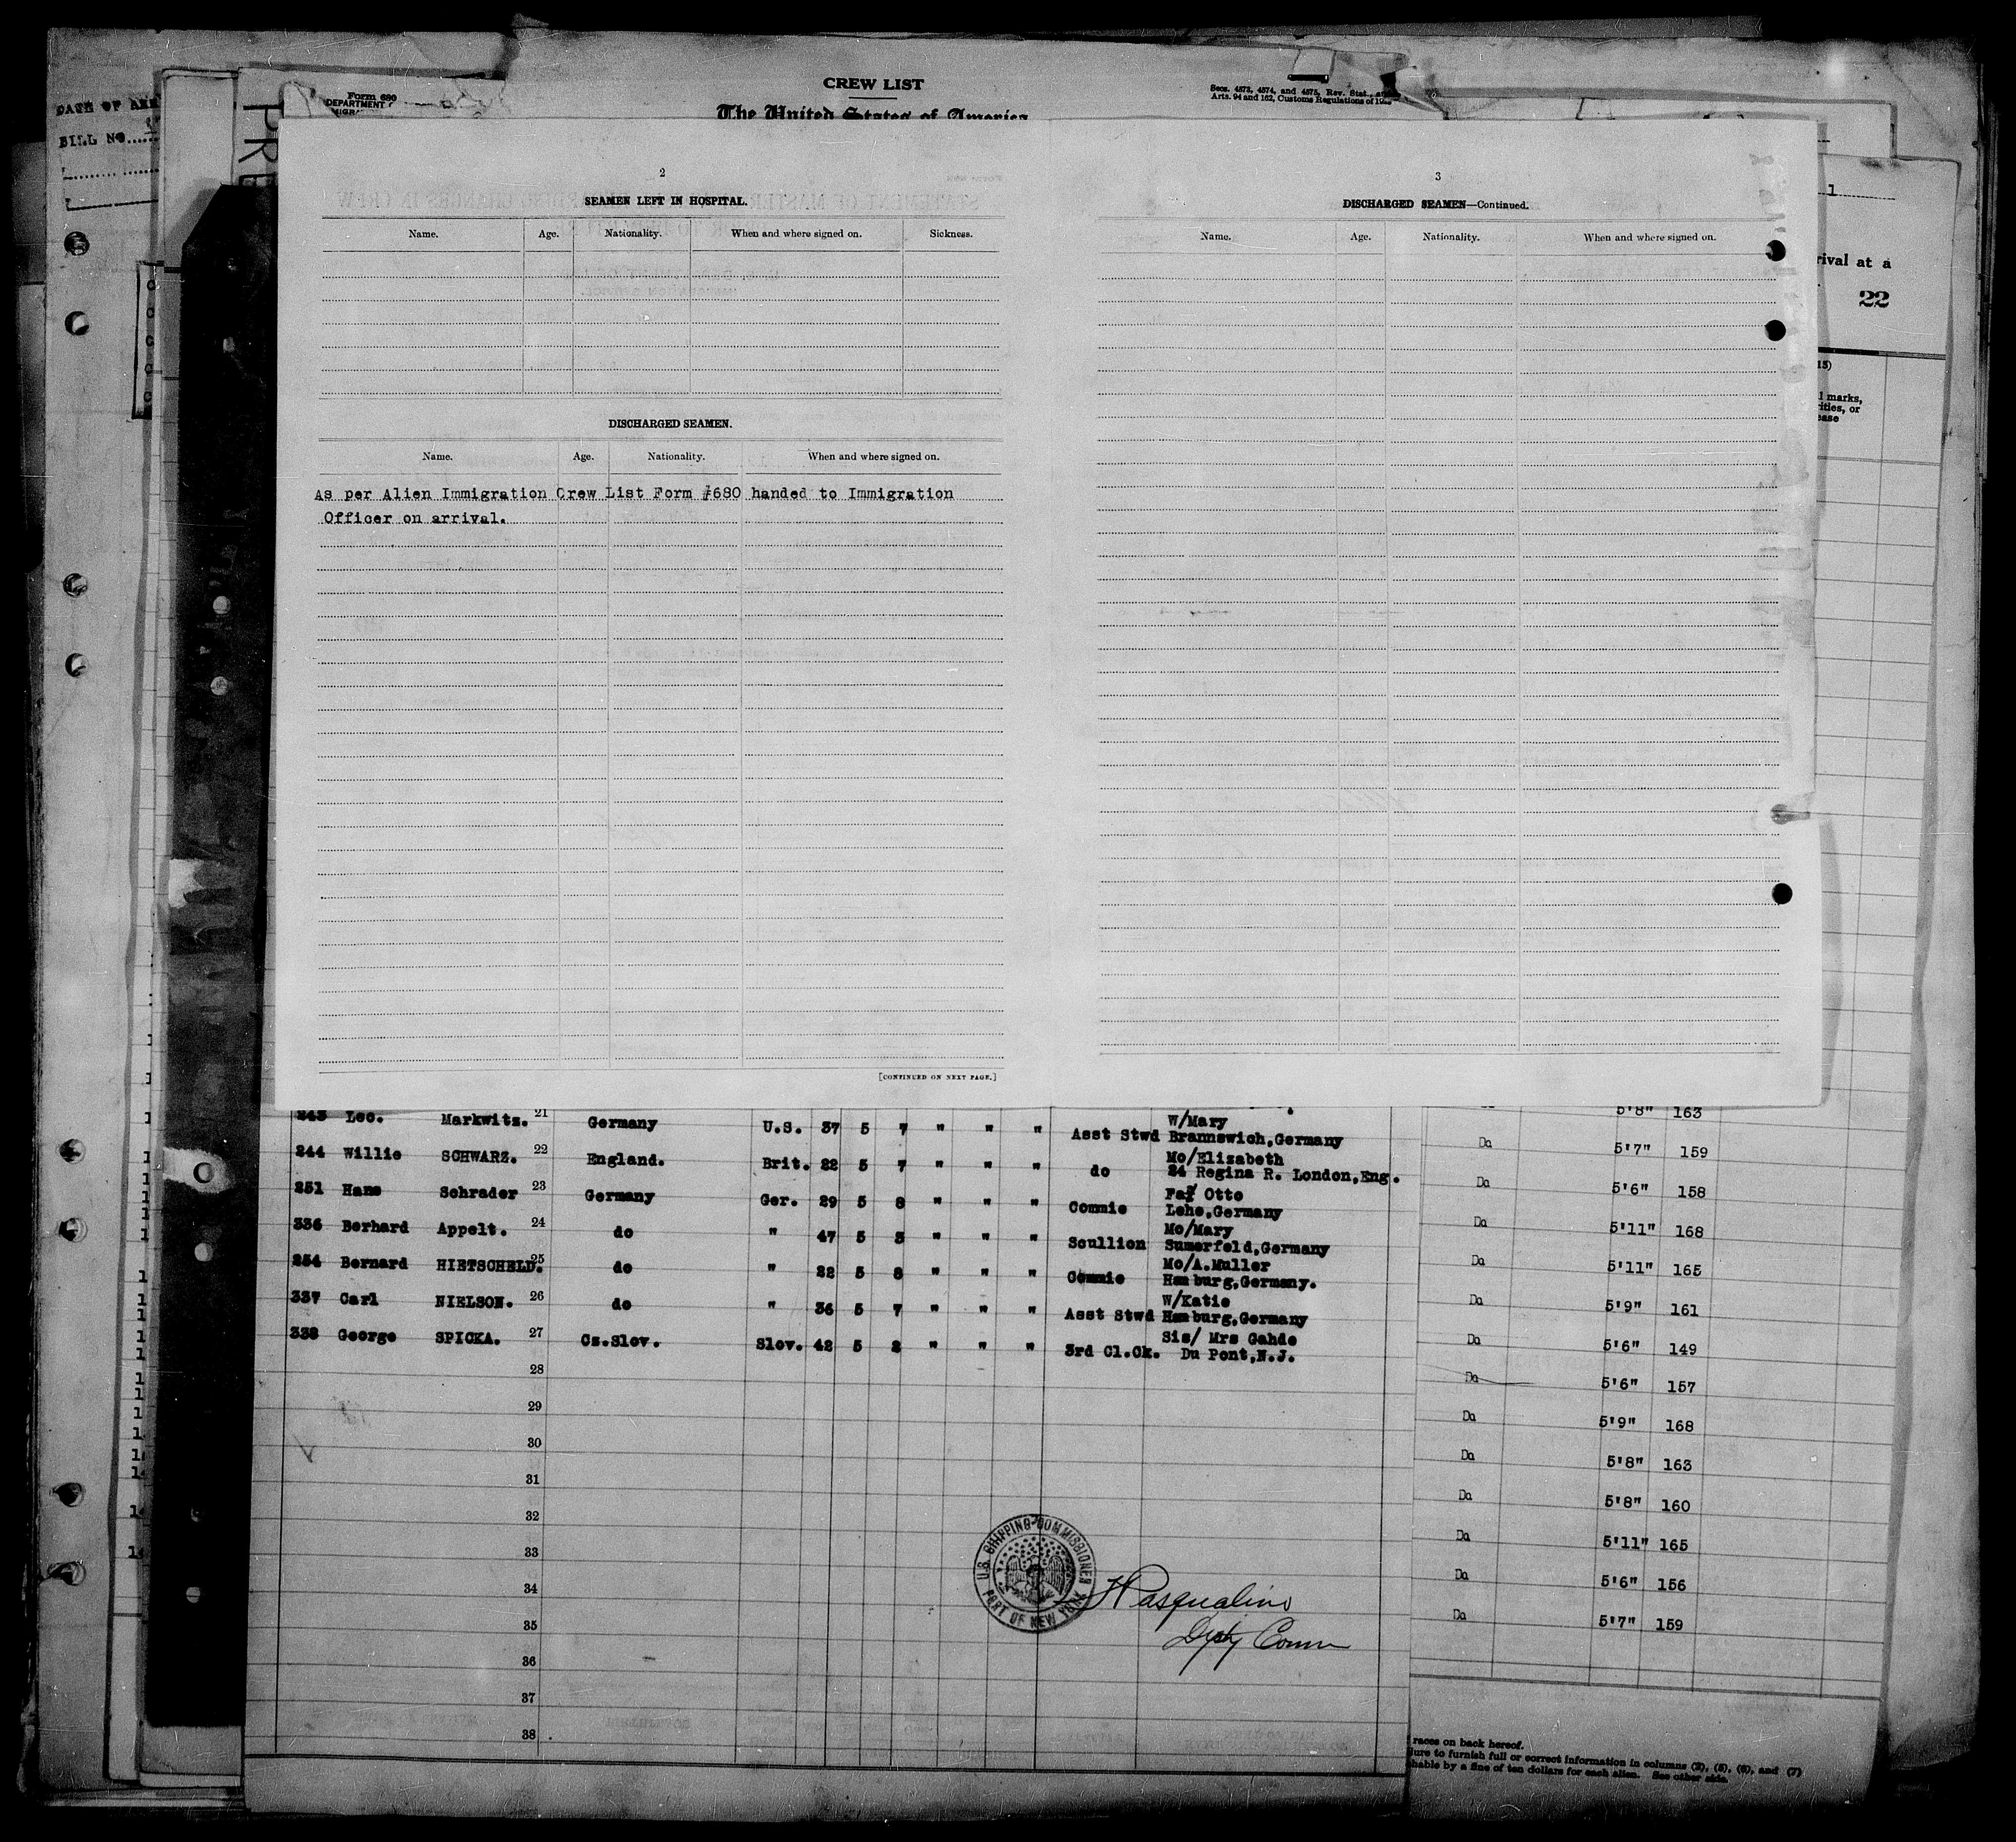 DATE OF
BILL NO.
Form 680
DEPARTMENT
CREW LIST
The United States of America
Secs. 4573, 4574, and 4575, Rev. Stat.,
Arts. 94 and 162, Customs Regulations of
PRE
2
SEAMEN LEFT IN HOSPITAL.
Name. Age. Nationality. When and where signed on. Sickness.
DISCHARGED SEAMEN.
Name. Age. Nationality. When and where signed on.
As per Alien Immigration Crew List Form #680 handed to Immigration
Officer on arrival.
[CONTINUED ON NEXT PAGE.]
3
DISCHARGED SEAMEN—Continued.
Name. Age. Nationality. When and where signed on.
1
rival at a
22
l marks,
rities, or
ease
243 Leo. Markwitz. 21 Germany U.S. 37 5 7 " " " Asst Stwd W/Mary
Brannswich,Germany
244 Willie SCHWARZ. 22 England. Brit. 22 5 7 " " " do Mo/Elizabeth
24 Regina R. London,Eng.
251 Hans Schrader 23 Germany Ger. 29 5 8 " " " Commie Fa/ Otto
Lehe,Germany
336 Berhard Appelt. 24 do " 47 5 3 " " " Scullion Mo/Mary
Sumerfeld,Germany
254 Bernard HIETSCHELD. 25 do " 22 5 8 " " " Commie Mo/A.Muller
Hamburg,Germany.
337 Carl NIELSON. 26 do " 36 5 7 " " " Asst Stwd W/Katie
Hamburg,Germany
338 George SPICKA. 27 Cz.Slov. Slov. 42 5 2 " " " 3rd Cl.Ck. Sis/ Mrs Gahde
Du Pont,N.J.
28
29
30
31
32
33
34
35
36
37
38
U.S. SHIPPING COMMISSIONER
PORT OF NEW YORK
Pasqualino
Dpty Comm
5'8" 163
Do 5'7" 159
Do 5'6" 158
Do 5'11" 168
Do 5'11" 165
Do 5'9" 161
Do 5'6" 149
Do 5'6" 157
Do 5'9" 168
Do 5'8" 163
Do 5'8" 160
Do 5'11" 165
Do 5'6" 156
Do 5'7" 159
races on back hereof.
lure to furnish full or correct information in columns (3), (5), (6), and (7)
hable by a fine of ten dollars for each alien. See other side.